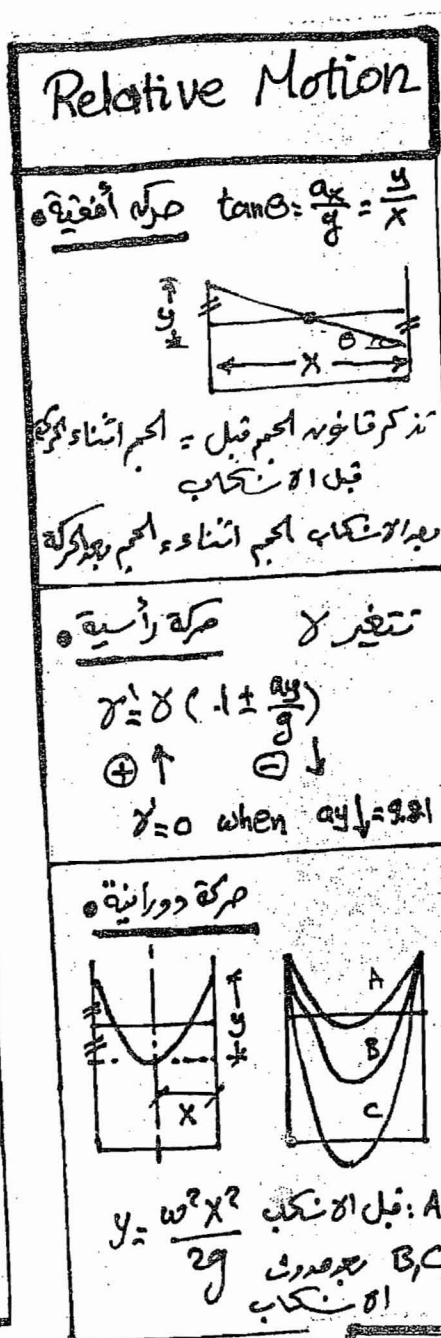 Relative Motion
حركة أفقية • tanθ = ax/g = y/x
y
θ
x
تذكر قانون الحجم قبل = الحجم اثناء الحركة
قبل الانسكاب
بعد الانسكاب الحجم اثناء = الحجم بعد الحركة
حركة رأسية • تتغير γ
γ' = γ ( 1 ± ay/g )
⊕ ↑ ⊖ ↓
γ' = 0 when ay↓ = 9.81
حركة دورانية •
y
x
A
B
C
y = ω²x²/2g
A : قبل الانسكاب
B,C بعد حدوث
الانسكاب